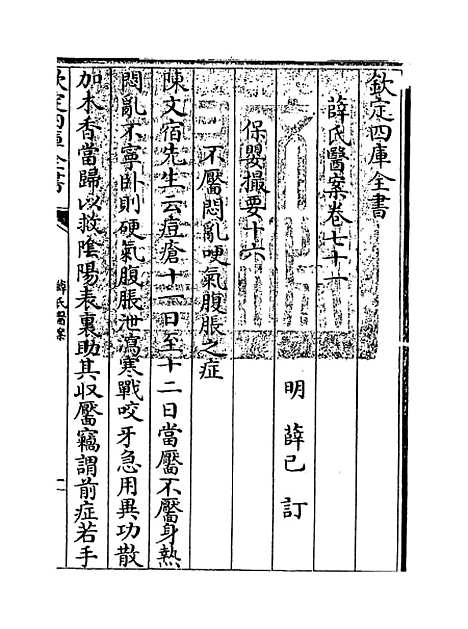 欽定四庫全書
薛氏醫案卷七十一
明 薛己 訂
保嬰撮要十六
不靨悶亂哽氣腹脹之症
陳文宿先生云痘瘡十一日至十二日當靨不靨身熱
悶亂不寧卧則哽氣腹脹泄瀉寒戰咬牙急用異功散
加木香當歸以救陰陽表裏助其収靨竊謂前症若手
欽定四庫全書
薛氏醫案